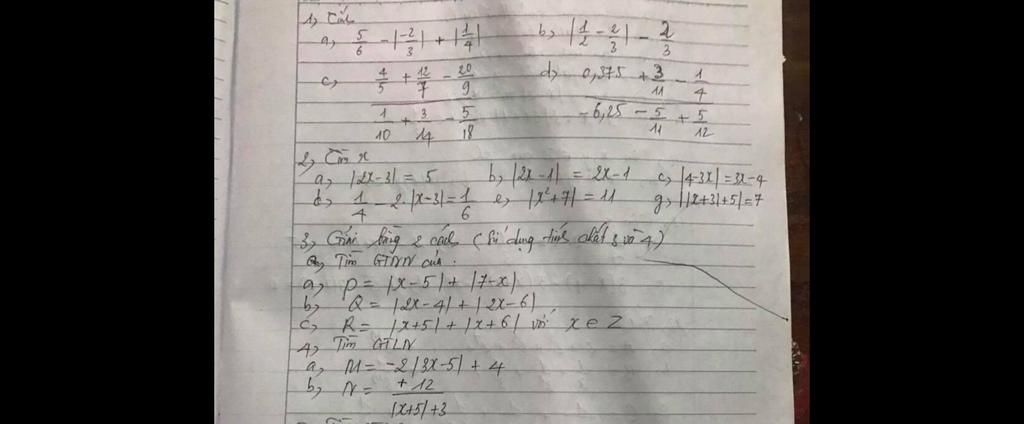 1, Tính
a, 5/6 - |-2/3| + |1/4| b, |1/2 - 2/3| - 2/3
c, 4/5 + 12/7 - 20/9 d, 0,375 + 3/11 - 1/4
1/10 + 3/14 - 5/18 -6,25 - 5/11 + 5/12
2, Tìm x
a, |2x-3| = 5 b, |2x-1| = 2x-1 c, |4-3x| = 3x-4
d, 1/4 - 2.|x-3| = 1/6 e, |x²+7| = 11 g, ||x+3|+5| = 7
3, Giải bằng 2 cách (Sử dụng tính chất 3 và 4)
Tìm GTNN của.
a, P = |x-5| + |7-x|
b, Q = |2x-4| + |2x-6|
c, R = |x+5| + |x+6| với x ∈ Z
4, Tìm GTLN
a, M = -2|3x-5| + 4
b, N = +12
|x+5|+3